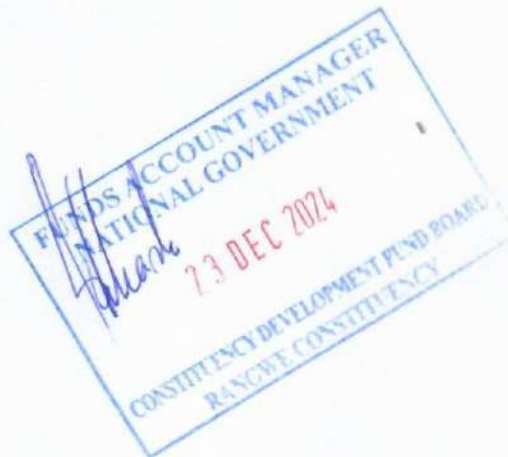 FUNDS ACCOUNT MANAGER
NATIONAL GOVERNMENT
23 DEC 2024
CONSTITUENCY DEVELOPMENT FUND BOARD
RANGWE CONSTITUENCY